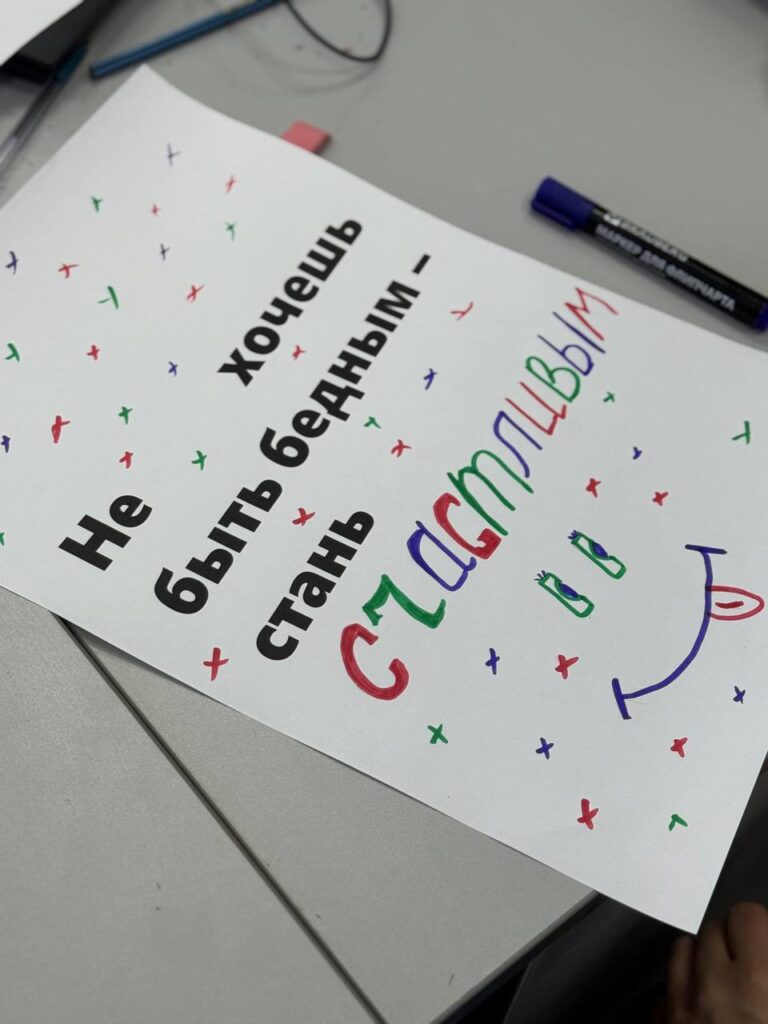 Не хочешь
быть бедным –
стань
счастливым
МАРКЕР ДЛЯ ФЛИПЧАРТА